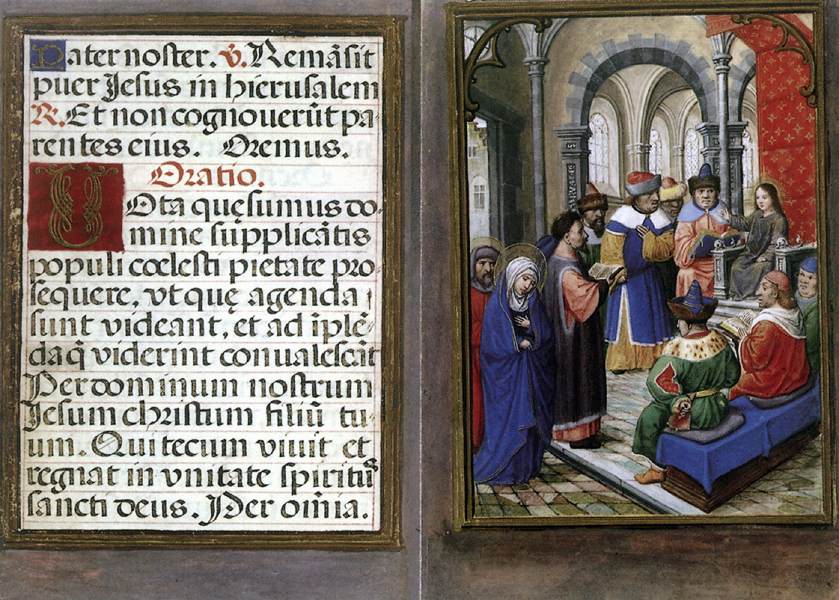 Pater noster. V̄. Remāsit
puer Jesus in hierusalem
R. Et non cognouerūt pa-
rentes eius. Oremus.
Oratio.
Uota quęsumus do-
mine supplicātis
populi cœlesti pietate pro-
sequere, vt quę agenda
sunt videant, et ad īplē-
da q̄ viderint conualescāt
Per dominum nostrum
Jesum christum filiū tu-
um. Qui tecum viuit et
regnat in vnitate spiritus
sancti deus. Per om̄ia.